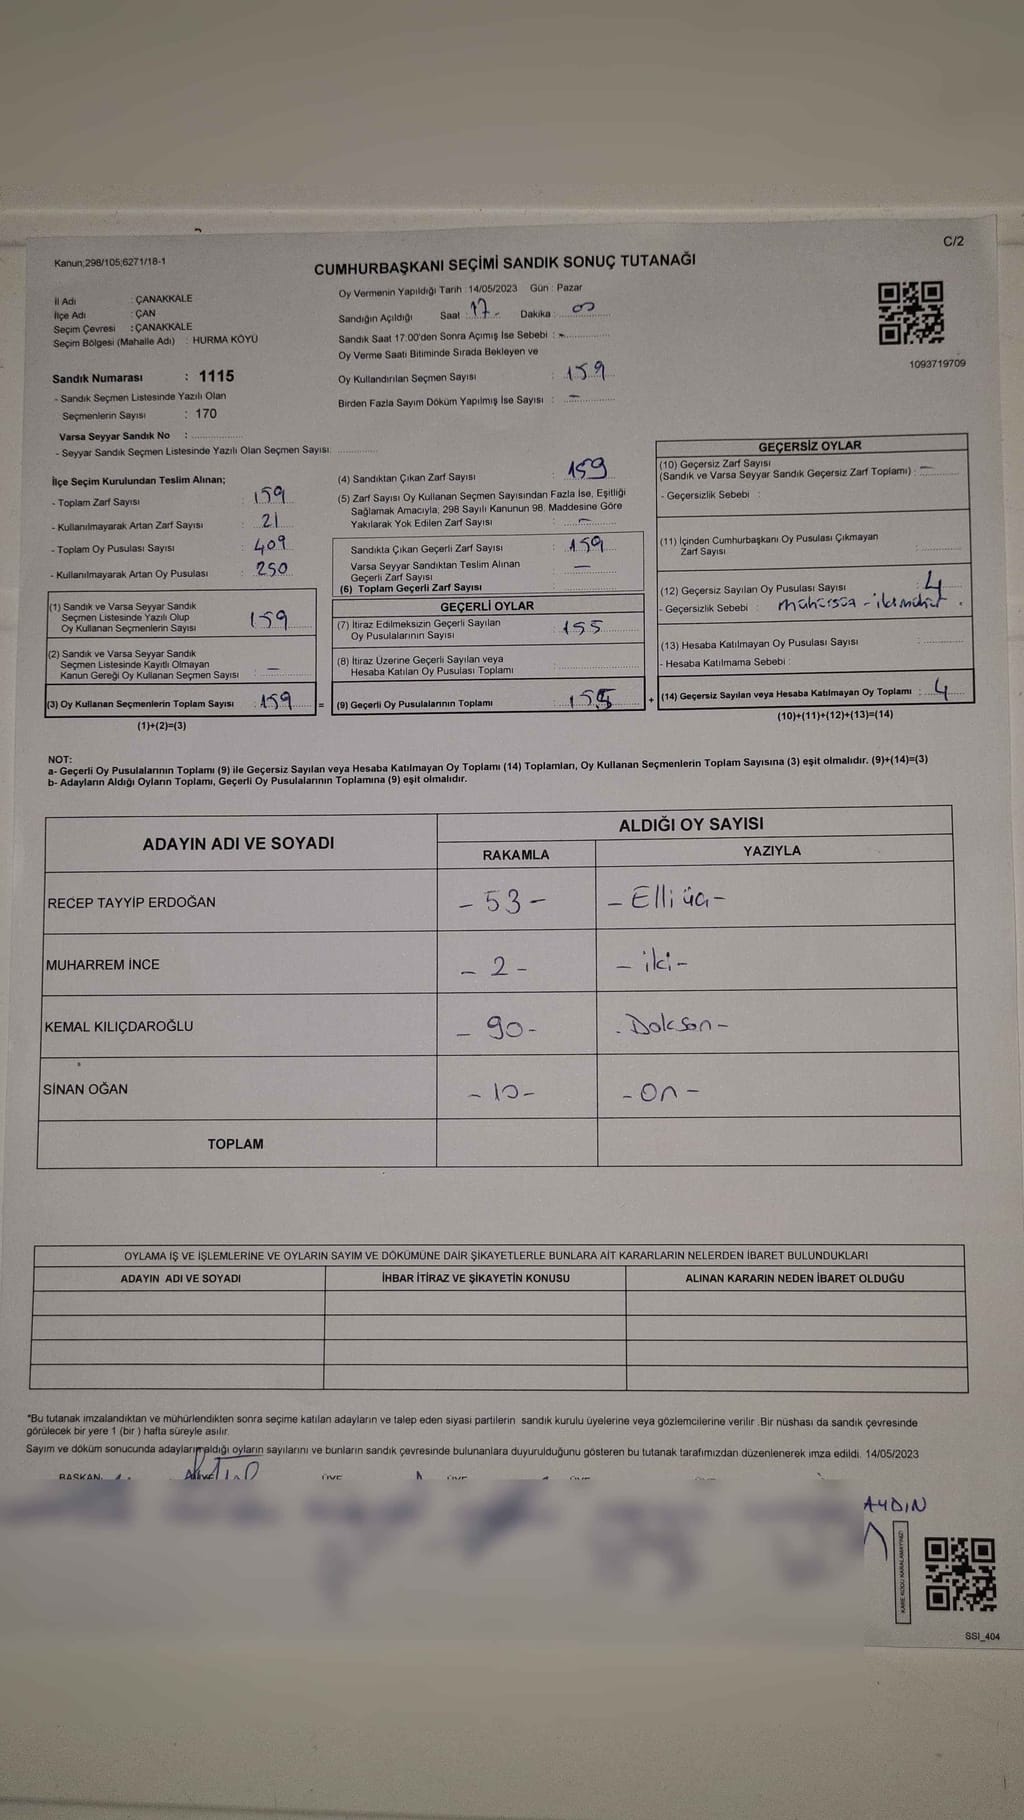 C/2
Kanun;298/105;6271/18-1
CUMHURBAŞKANI SEÇİMİ SANDIK SONUÇ TUTANAĞI
İl Adı : ÇANAKKALE
İlçe Adı : ÇAN
Seçim Çevresi : ÇANAKKALE
Seçim Bölgesi (Mahalle Adı) : HURMA KÖYÜ
Sandık Numarası : 1115
- Sandık Seçmen Listesinde Yazılı Olan
Seçmenlerin Sayısı : 170
Varsa Seyyar Sandık No :
- Seyyar Sandık Seçmen Listesinde Yazılı Olan Seçmen Sayısı:
Oy Vermenin Yapıldığı Tarih : 14/05/2023 Gün : Pazar
Sandığın Açıldığı Saat : 17 - Dakika : 00
Sandık Saat 17:00'den Sonra Açımış İse Sebebi : -
Oy Verme Saati Bitiminde Sırada Bekleyen ve
Oy Kullandırılan Seçmen Sayısı : 159
Birden Fazla Sayım Döküm Yapılmış İse Sayısı : -
1093719709
İlçe Seçim Kurulundan Teslim Alınan;
- Toplam Zarf Sayısı : 159
- Kullanılmayarak Artan Zarf Sayısı : 21
- Toplam Oy Pusulası Sayısı : 409
- Kullanılmayarak Artan Oy Pusulası : 250
(1) Sandık ve Varsa Seyyar Sandık
Seçmen Listesinde Yazılı Olup
Oy Kullanan Seçmenlerin Sayısı : 159
(2) Sandık ve Varsa Seyyar Sandık
Seçmen Listesinde Kayıtlı Olmayan
Kanun Gereği Oy Kullanan Seçmen Sayısı : -
(3) Oy Kullanan Seçmenlerin Toplam Sayısı : 159
(1)+(2)=(3)
(4) Sandıktan Çıkan Zarf Sayısı : 159
(5) Zarf Sayısı Oy Kullanan Seçmen Sayısından Fazla İse, Eşitliği
Sağlamak Amacıyla; 298 Sayılı Kanunun 98. Maddesine Göre
Yakılarak Yok Edilen Zarf Sayısı : -
Sandıkta Çıkan Geçerli Zarf Sayısı : 159
Varsa Seyyar Sandıktan Teslim Alınan
Geçerli Zarf Sayısı : -
(6) Toplam Geçerli Zarf Sayısı :
GEÇERLİ OYLAR
(7) İtiraz Edilmeksizin Geçerli Sayılan
Oy Pusulalarının Sayısı : 155
(8) İtiraz Üzerine Geçerli Sayılan veya
Hesaba Katılan Oy Pusulası Toplamı :
= (9) Geçerli Oy Pusulalarının Toplamı : 155 +
GEÇERSİZ OYLAR
(10) Geçersiz Zarf Sayısı
(Sandık ve Varsa Seyyar Sandık Geçersiz Zarf Toplamı) : -
- Geçersizlik Sebebi :
(11) İçinden Cumhurbaşkanı Oy Pusulası Çıkmayan
Zarf Sayısı :
(12) Geçersiz Sayılan Oy Pusulası Sayısı : 4
- Geçersizlik Sebebi :
(13) Hesaba Katılmayan Oy Pusulası Sayısı :
- Hesaba Katılmama Sebebi :
(14) Geçersiz Sayılan veya Hesaba Katılmayan Oy Toplamı : 4
(10)+(11)+(12)+(13)=(14)
NOT:
a- Geçerli Oy Pusulalarının Toplamı (9) ile Geçersiz Sayılan veya Hesaba Katılmayan Oy Toplamı (14) Toplamları, Oy Kullanan Seçmenlerin Toplam Sayısına (3) eşit olmalıdır. (9)+(14)=(3)
b- Adayların Aldığı Oyların Toplamı, Geçerli Oy Pusulalarının Toplamına (9) eşit olmalıdır.
ADAYIN ADI VE SOYADI
ALDIĞI OY SAYISI
RAKAMLA YAZIYLA
RECEP TAYYİP ERDOĞAN - 53 - - Elli üç -
MUHARREM İNCE - 2 - - iki -
KEMAL KILIÇDAROĞLU - 90 - - Doksan -
SİNAN OĞAN - 10 - - on -
TOPLAM
OYLAMA İŞ VE İŞLEMLERİNE VE OYLARIN SAYIM VE DÖKÜMÜNE DAİR ŞİKAYETLERLE BUNLARA AİT KARARLARIN NELERDEN İBARET BULUNDUKLARI
ADAYIN ADI VE SOYADI İHBAR İTİRAZ VE ŞİKAYETİN KONUSU ALINAN KARARIN NEDEN İBARET OLDUĞU
*Bu tutanak imzalandıktan ve mühürlendikten sonra seçime katılan adayların ve talep eden siyasi partilerin sandık kurulu üyelerine veya gözlemcilerine verilir .Bir nüshası da sandık çevresinde
görülecek bir yere 1 (bir ) hafta süreyle asılır.
Sayım ve döküm sonucunda adayların aldığı oyların sayılarını ve bunların sandık çevresinde bulunanlara duyurulduğunu gösteren bu tutanak tarafımızdan düzenlenerek imza edildi. 14/05/2023
BAŞKAN
AYDIN
KARE KODU KARALAMAYINIZ!
SSI_404